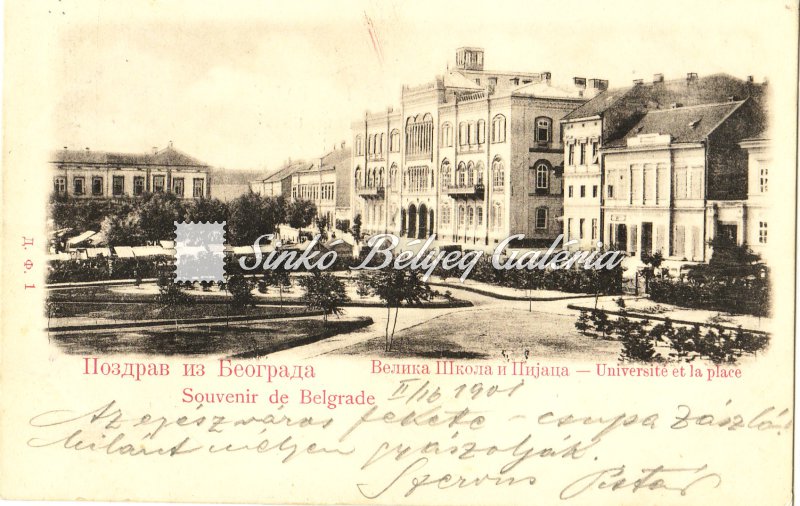 Sinkó Bélyeg Galéria
Д. Ф. 1
Поздрав из Београда
Велика Школа и Пијаца — Université et la place
Souvenir de Belgrade
II/16 1901
Az egész város fekete – csupa zászló.
Milánt mélyen gyászolják.
Szervus Pista